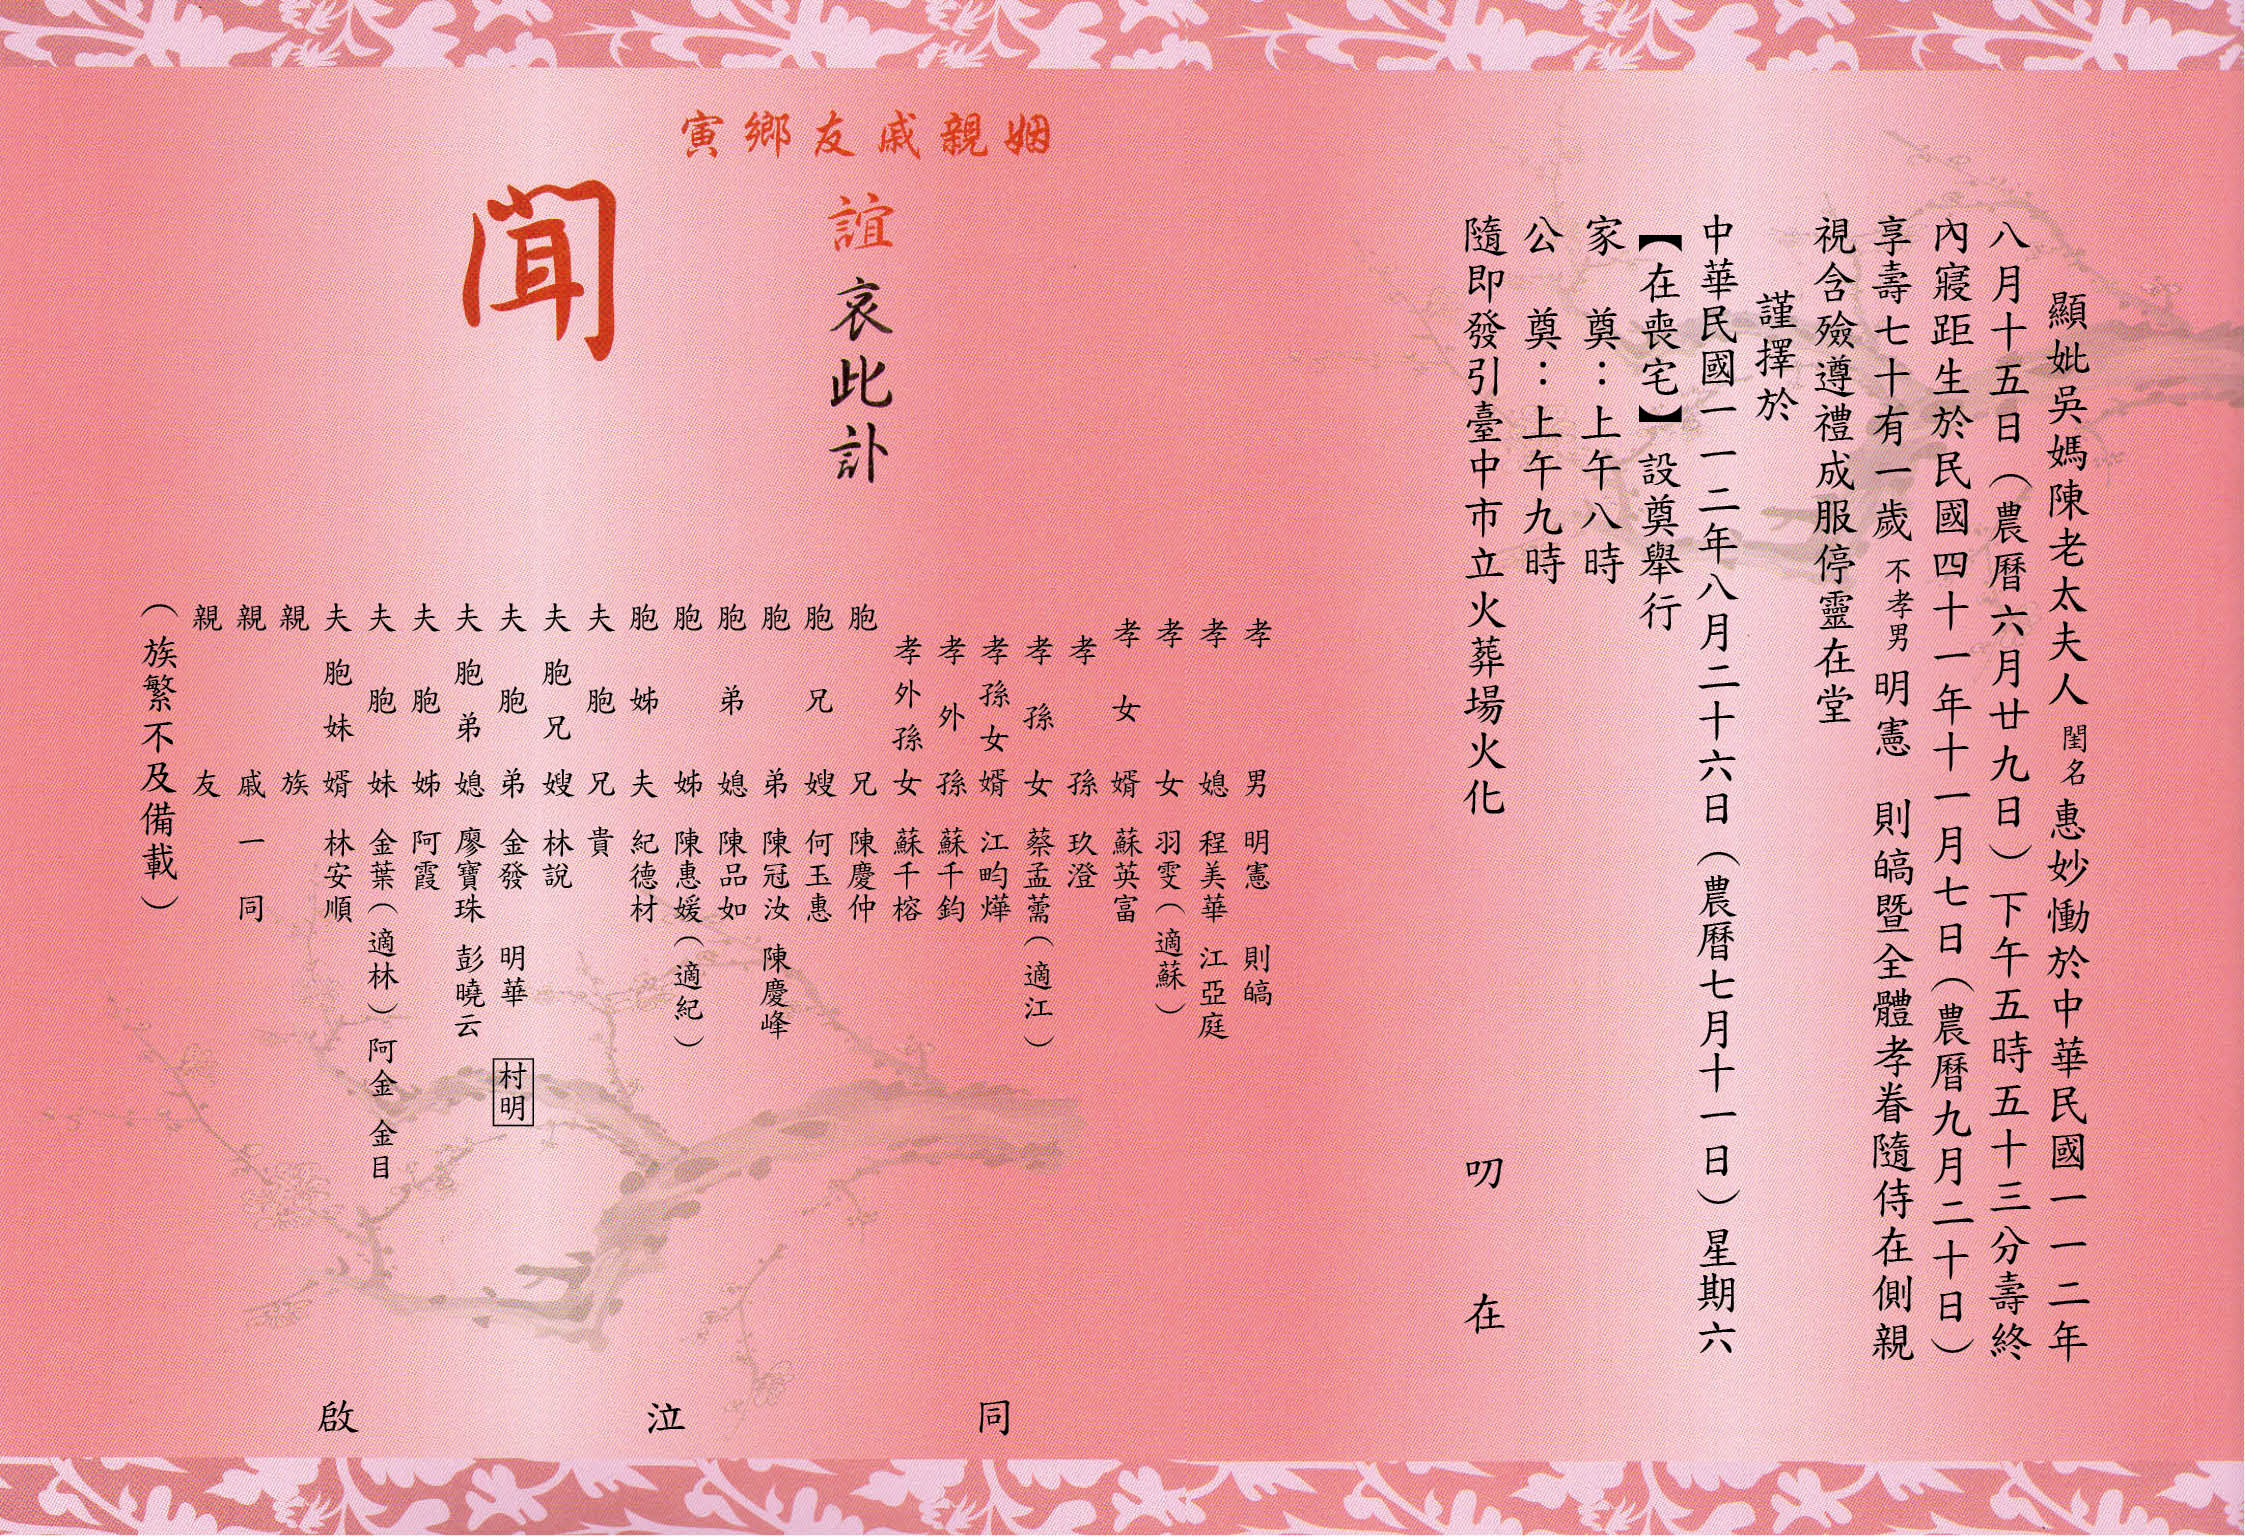 顯妣吳媽陳老太夫人閨名惠妙慟於中華民國一一二年
八月十五日（農曆六月廿九日）下午五時五十三分壽終
內寢距生於民國四十一年十一月七日（農曆九月二十日）
享壽七十有一歲不孝男明憲 則皜暨全體孝眷隨侍在側親
視含殮遵禮成服停靈在堂
謹擇於
中華民國一一二年八月二十六日（農曆七月十一日）星期六
【在喪宅】設奠舉行
家 奠：上午八時
公 奠：上午九時
隨即發引臺中市立火葬場火化
叨 在
姻親戚友鄉寅
誼哀此訃
聞
孝男 明憲 則皜
孝媳 程美華 江亞庭
孝女 羽雯（適蘇）
孝女婿 蘇英富
孝孫 玖澄
孝孫女 蔡孟薷（適江）
孝孫女婿 江畇燁
孝外孫 蘇千鈞
孝外孫女 蘇千榕
胞兄 陳慶仲
胞兄嫂 何玉惠
胞弟 陳冠汝 陳慶峰
胞弟媳 陳品如
胞姊 陳惠媛（適紀）
胞姊夫 紀德材
夫胞兄 貴
夫胞兄嫂 林說
夫胞弟 金發 明華 村明
夫胞弟媳 廖寶珠 彭曉云
夫胞姊 阿霞
夫胞妹 金葉（適林）阿金 金目
夫胞妹婿 林安順
親族
親戚一同
親友
（族繁不及備載）
同 泣 啟